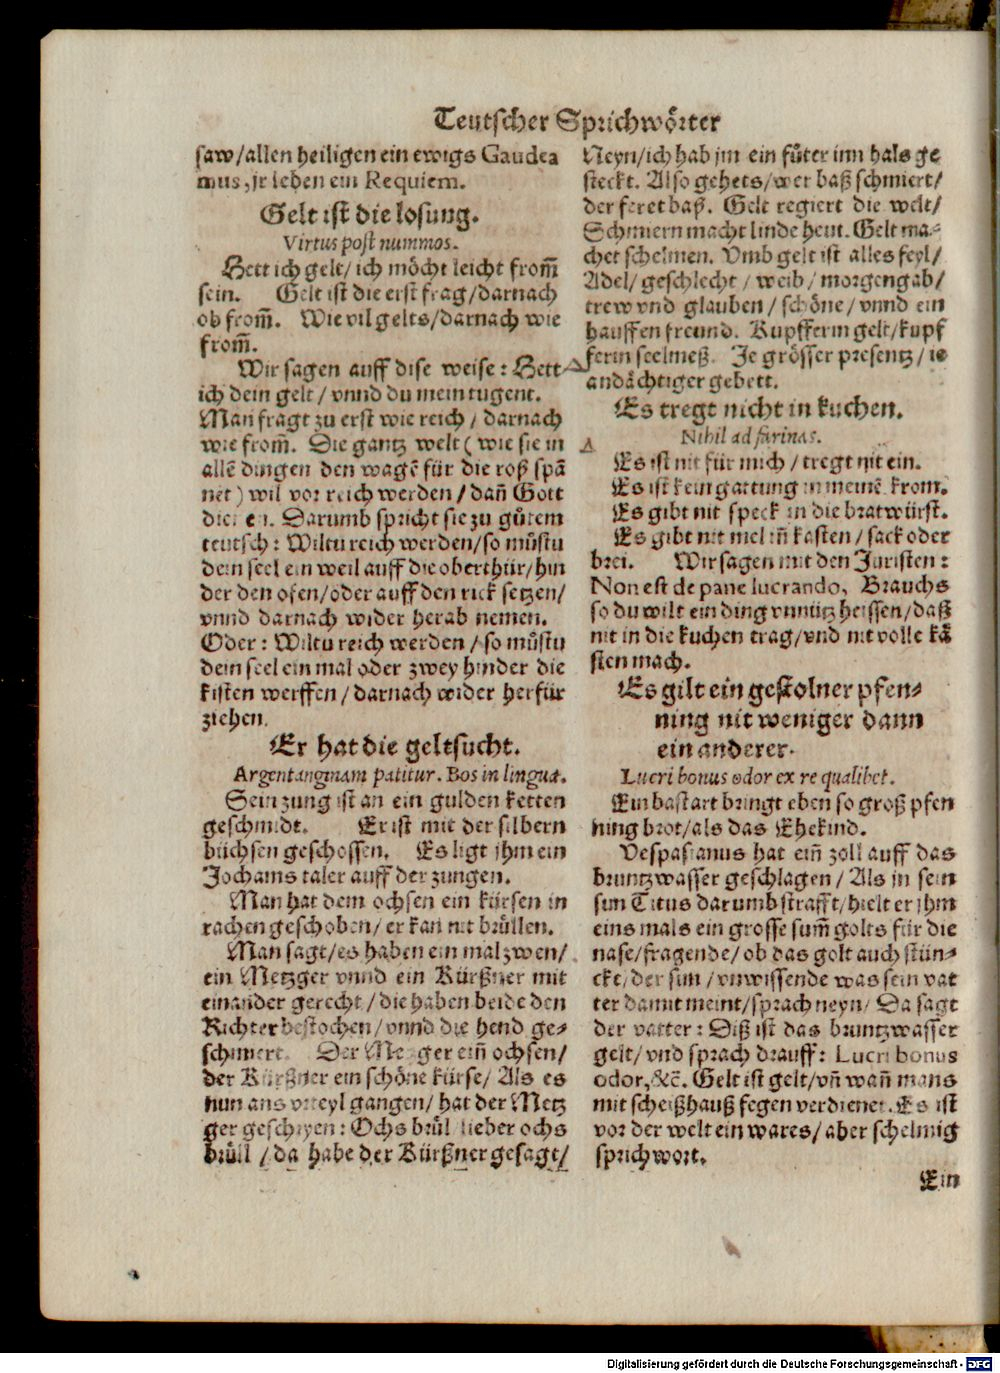 Teutscher Sprichwörter
saw/allen heiligen ein ewigs Gaudea
mus, jr leben ein Requiem.
Gelt ist die losung.
Virtus post nummos.
Hett ich gelt/ ich möcht leicht from̄
sein. Gelt ist die erst frag/darnach
ob from̄. Wie vil gelts/darnach wie
from̄.
Wir sagen auff dise weise: Hett
ich dein gelt/ vnnd du mein tugent.
Man fragt zu erst wie reich/ darnach
wie from̄. Die gantz welt (wie sie in
allē dingen den wagē für die roß spā
net) wil vor reich werden/ dañ Gott
Darumb spricht sie zu gůtem
teutsch: Wiltu reich werden/so můstu
dein seel ein weil auff die oberthür/hin
der den ofen/oder auff den rick setzen/
vnnd darnach wider herab nemen.
Oder: Wiltu reich werden/ so můstu
dein seel ein mal oder zwey hinder die
kisten werffen/ darnach wider herfür
ziehen.
Er hat die geltsucht.
Argentanginam patitur. Bos in lingua.
Sein zung ist an ein gulden ketten
geschmidt. Er ist mit der silbern
büchsen geschossen. Es ligt jhm ein
Jochams taler auff der zungen.
Man hat dem ochsen ein kürsen in
rachen geschoben/ er kan nit brüllen.
Man sagt/es haben ein mal zwen/
ein Metzger vnnd ein Kürßner mit
einander gerecht/ die haben beide den
Richter bestochen/ vnnd die hend ge-
schmiert. Der Metzger eiñ ochsen/
der Kürßner ein schöne kürse/ Als es
nun ans vrteyl gangen/ hat der Metz
ger geschryen: Ochs brül lieber ochs
brüll/ da habe der Kürßner gesagt/
Neyn/ich hab jm ein fůter inn hals ge
steckt. Also gehets/wer baß schmiert/
der feret baß. Gelt regiert die welt/
Schmiern macht linde heut. Gelt ma-
chet schelmen. Vmb gelt ist alles feyl/
Adel/ geschlecht/ weib/ morgengab/
trew vnd glauben/ schöne/ vnnd ein
hauffen freund. Kupfferin gelt/kupf
ferin seelmeß. Je grösser presentz/ ie
andächtiger gebett.
Es tregt nicht in kuchen.
Nihil ad farinas.
A
Es ist nit für mich/ tregt nit ein.
Es ist kein gattung in meinē krom.
Es gibt nit speck in die bratwürst.
Es gibt nit mel iñ kasten/ sack oder
brei. Wir sagen mit den Juristen:
Non est de pane lucrando, Brauchs
so du wilt ein ding vnnütz heissen/daß
nit in die kuchen trag/vnd nit volle kä
sten mach.
Es gilt ein gestolner pfen-
ning nit weniger dann
ein anderer.
Lucri bonus odor ex re qualibet.
Ein bastart bringt eben so groß pfen
ning brot/als das Ehekind.
Vespasianus hat eiñ zoll auff das
bruntzwasser geschlagen/ Als jn sein
sun Titus darumb strafft/hielt er jhm
eins mals ein grosse sum̄ golts für die
nase/fragende/ ob das golt auch stün-
cke/der sun/vnwissende was sein vat
ter damit meint/sprach neyn/ Da sagt
der vatter: Diß ist das bruntzwasser
gelt/ vnd sprach drauff: Lucri bonus
odor, &c̄. Gelt ist gelt/vñ wañ mans
mit scheißhauß fegen verdienet. Es ist
vor der welt ein wares/ aber schelmig
sprichwort.
Ein
Digitalisierung gefördert durch die Deutsche Forschungsgemeinschaft - DFG